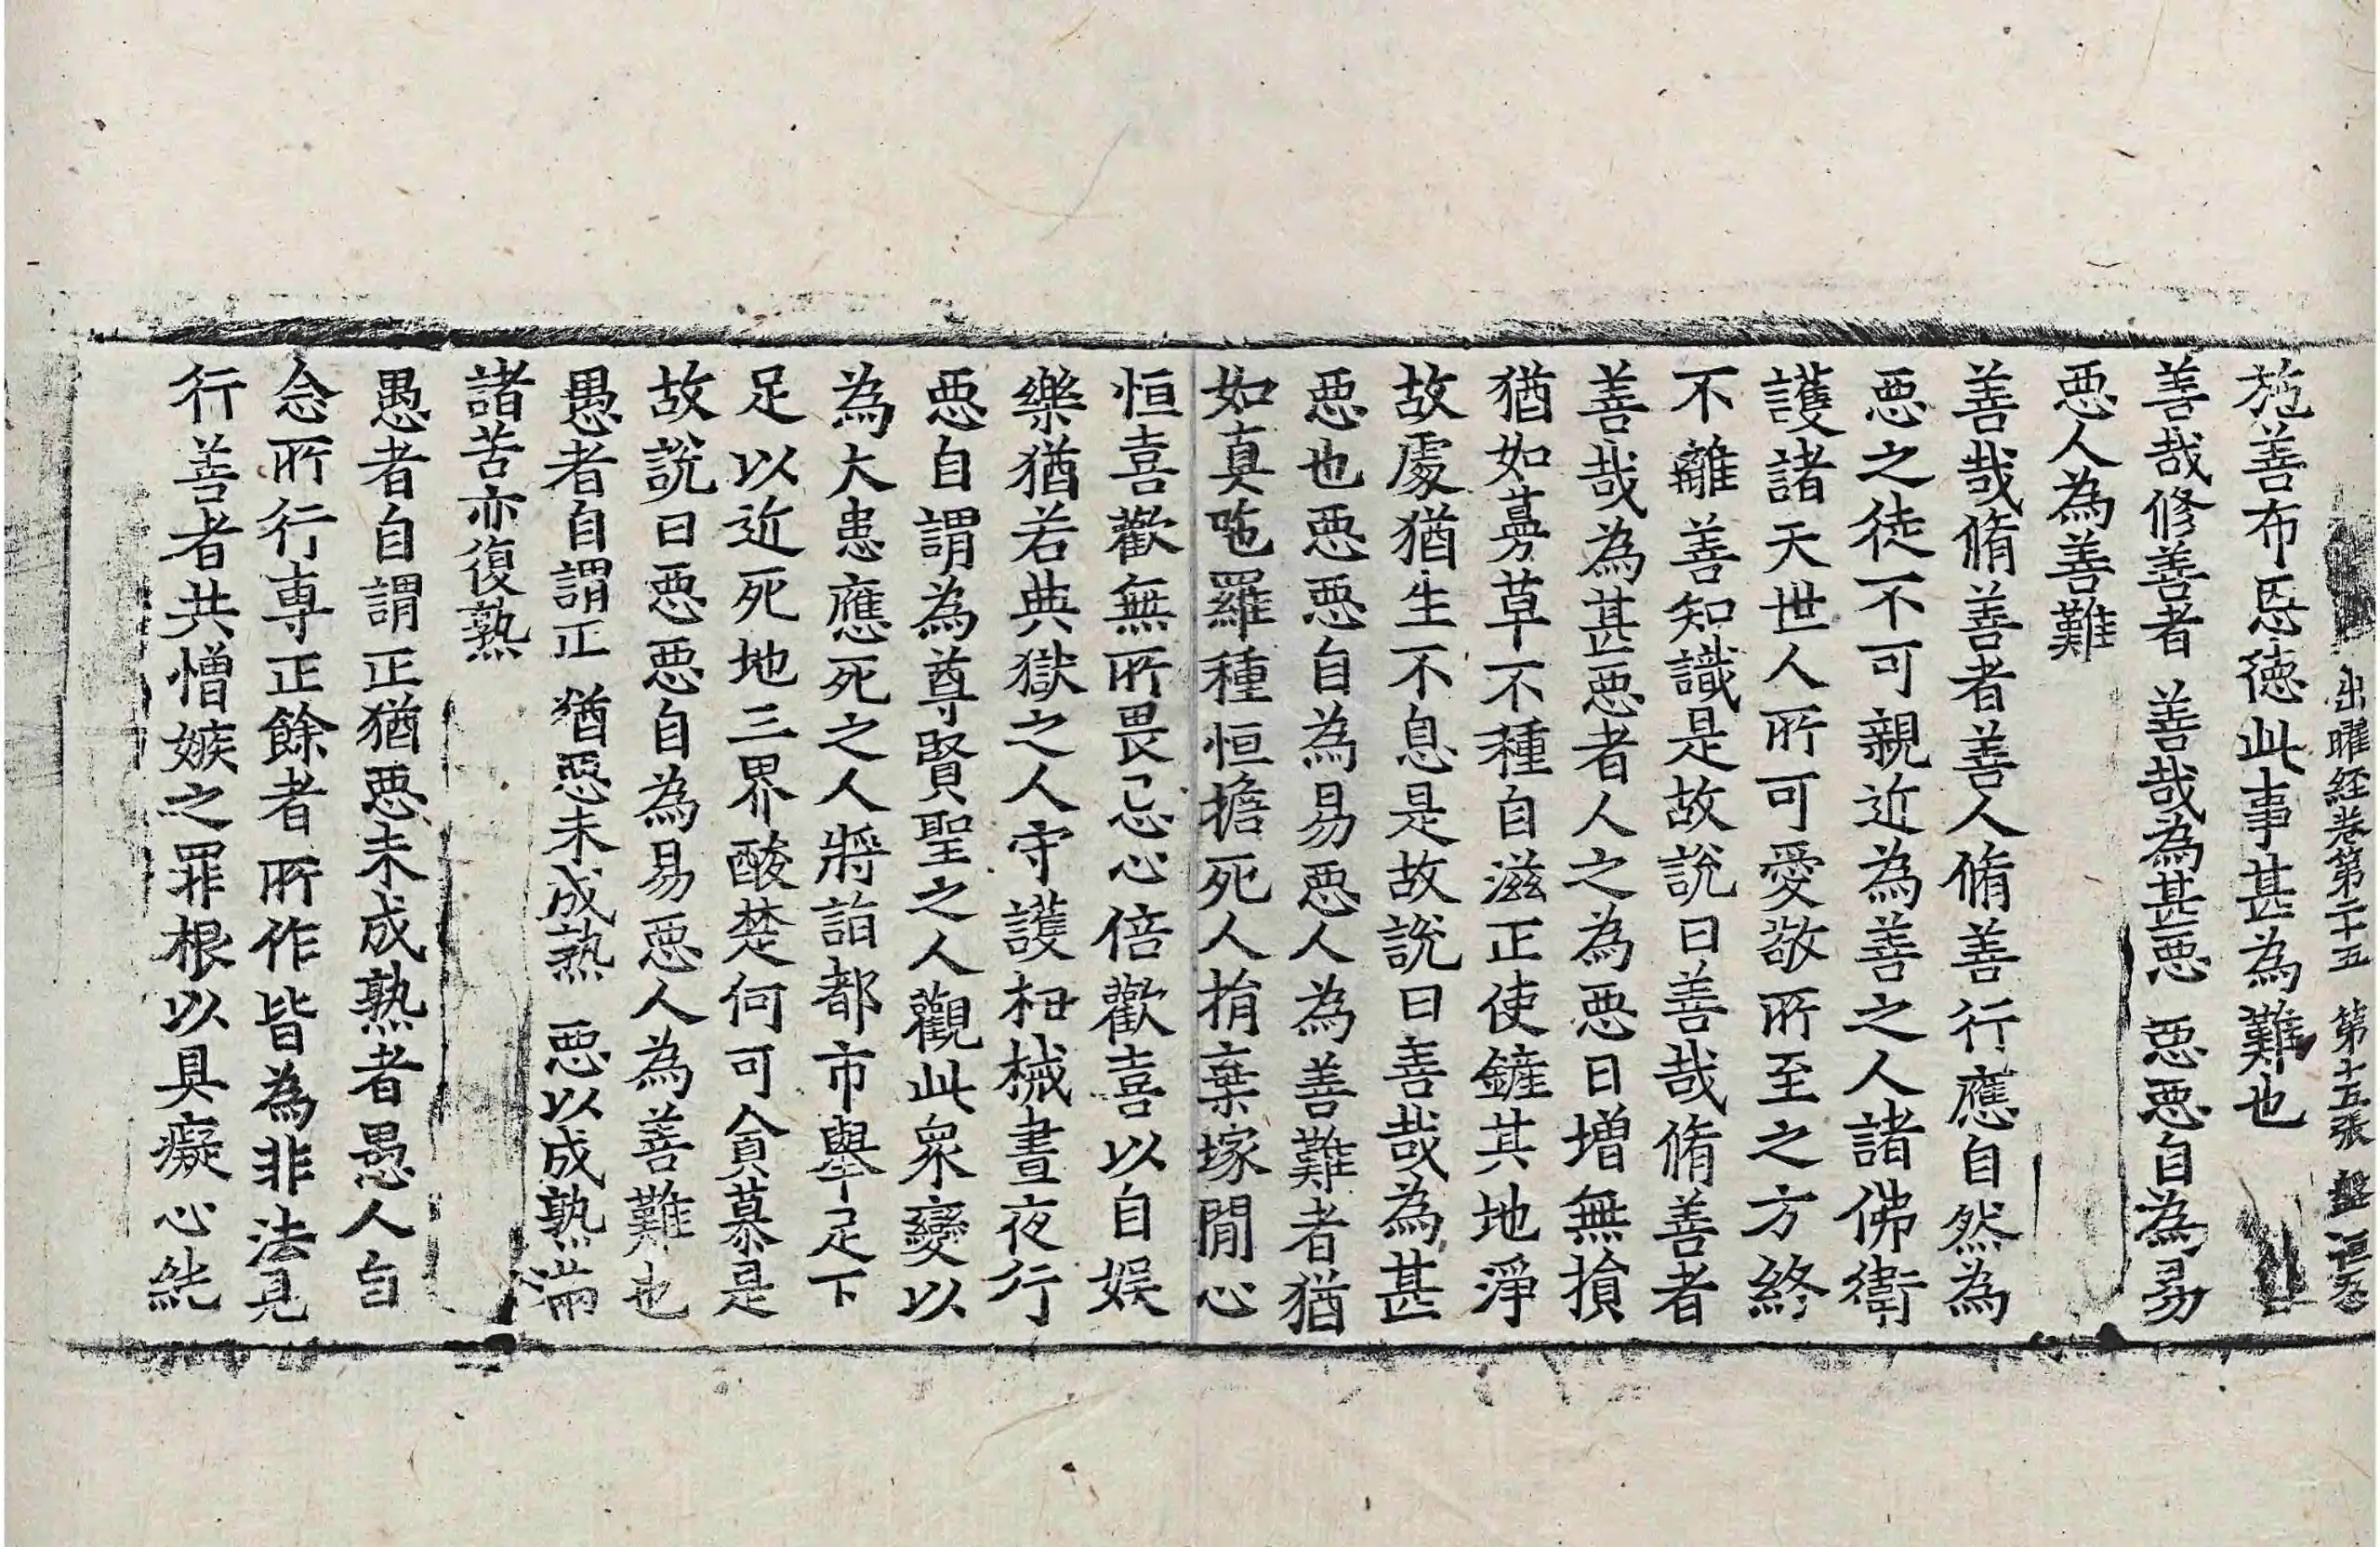 出曜經卷第二十五 第十五張 盤
施善布恩德此事甚為難也
善哉修善者 善哉為甚惡 惡惡自為易
惡人為善難
善哉脩善者善人脩善行應自然為
惡之徒不可親近為善之人諸佛衛
護諸天世人所可愛敬所至之方終
不離善知識是故說曰善哉脩善者
善哉為甚惡者人之為惡日增無損
猶如蒡草不種自滋正使鏟其地淨
故處猶生不息是故說曰善哉為甚
惡也惡惡自為易惡人為善難者猶
如真咃羅種恒擔死人捐棄塚間心
恒喜歡無所畏忌心倍歡喜以自娛
樂猶若典獄之人守護杻械晝夜行
惡自謂為尊賢聖之人觀此衆變以
為大患應死之人將詣都市舉足下
足以近死地三界酸楚何可貪慕是
故說曰惡惡自為易惡人為善難也
愚者自謂正 猶惡未成熟 惡以成熟滿
諸苦亦復熟
愚者自謂正猶惡未成熟者愚人自
念所行專正餘者所作皆為非法見
行善者共憎嫉之罪根以具癡心純